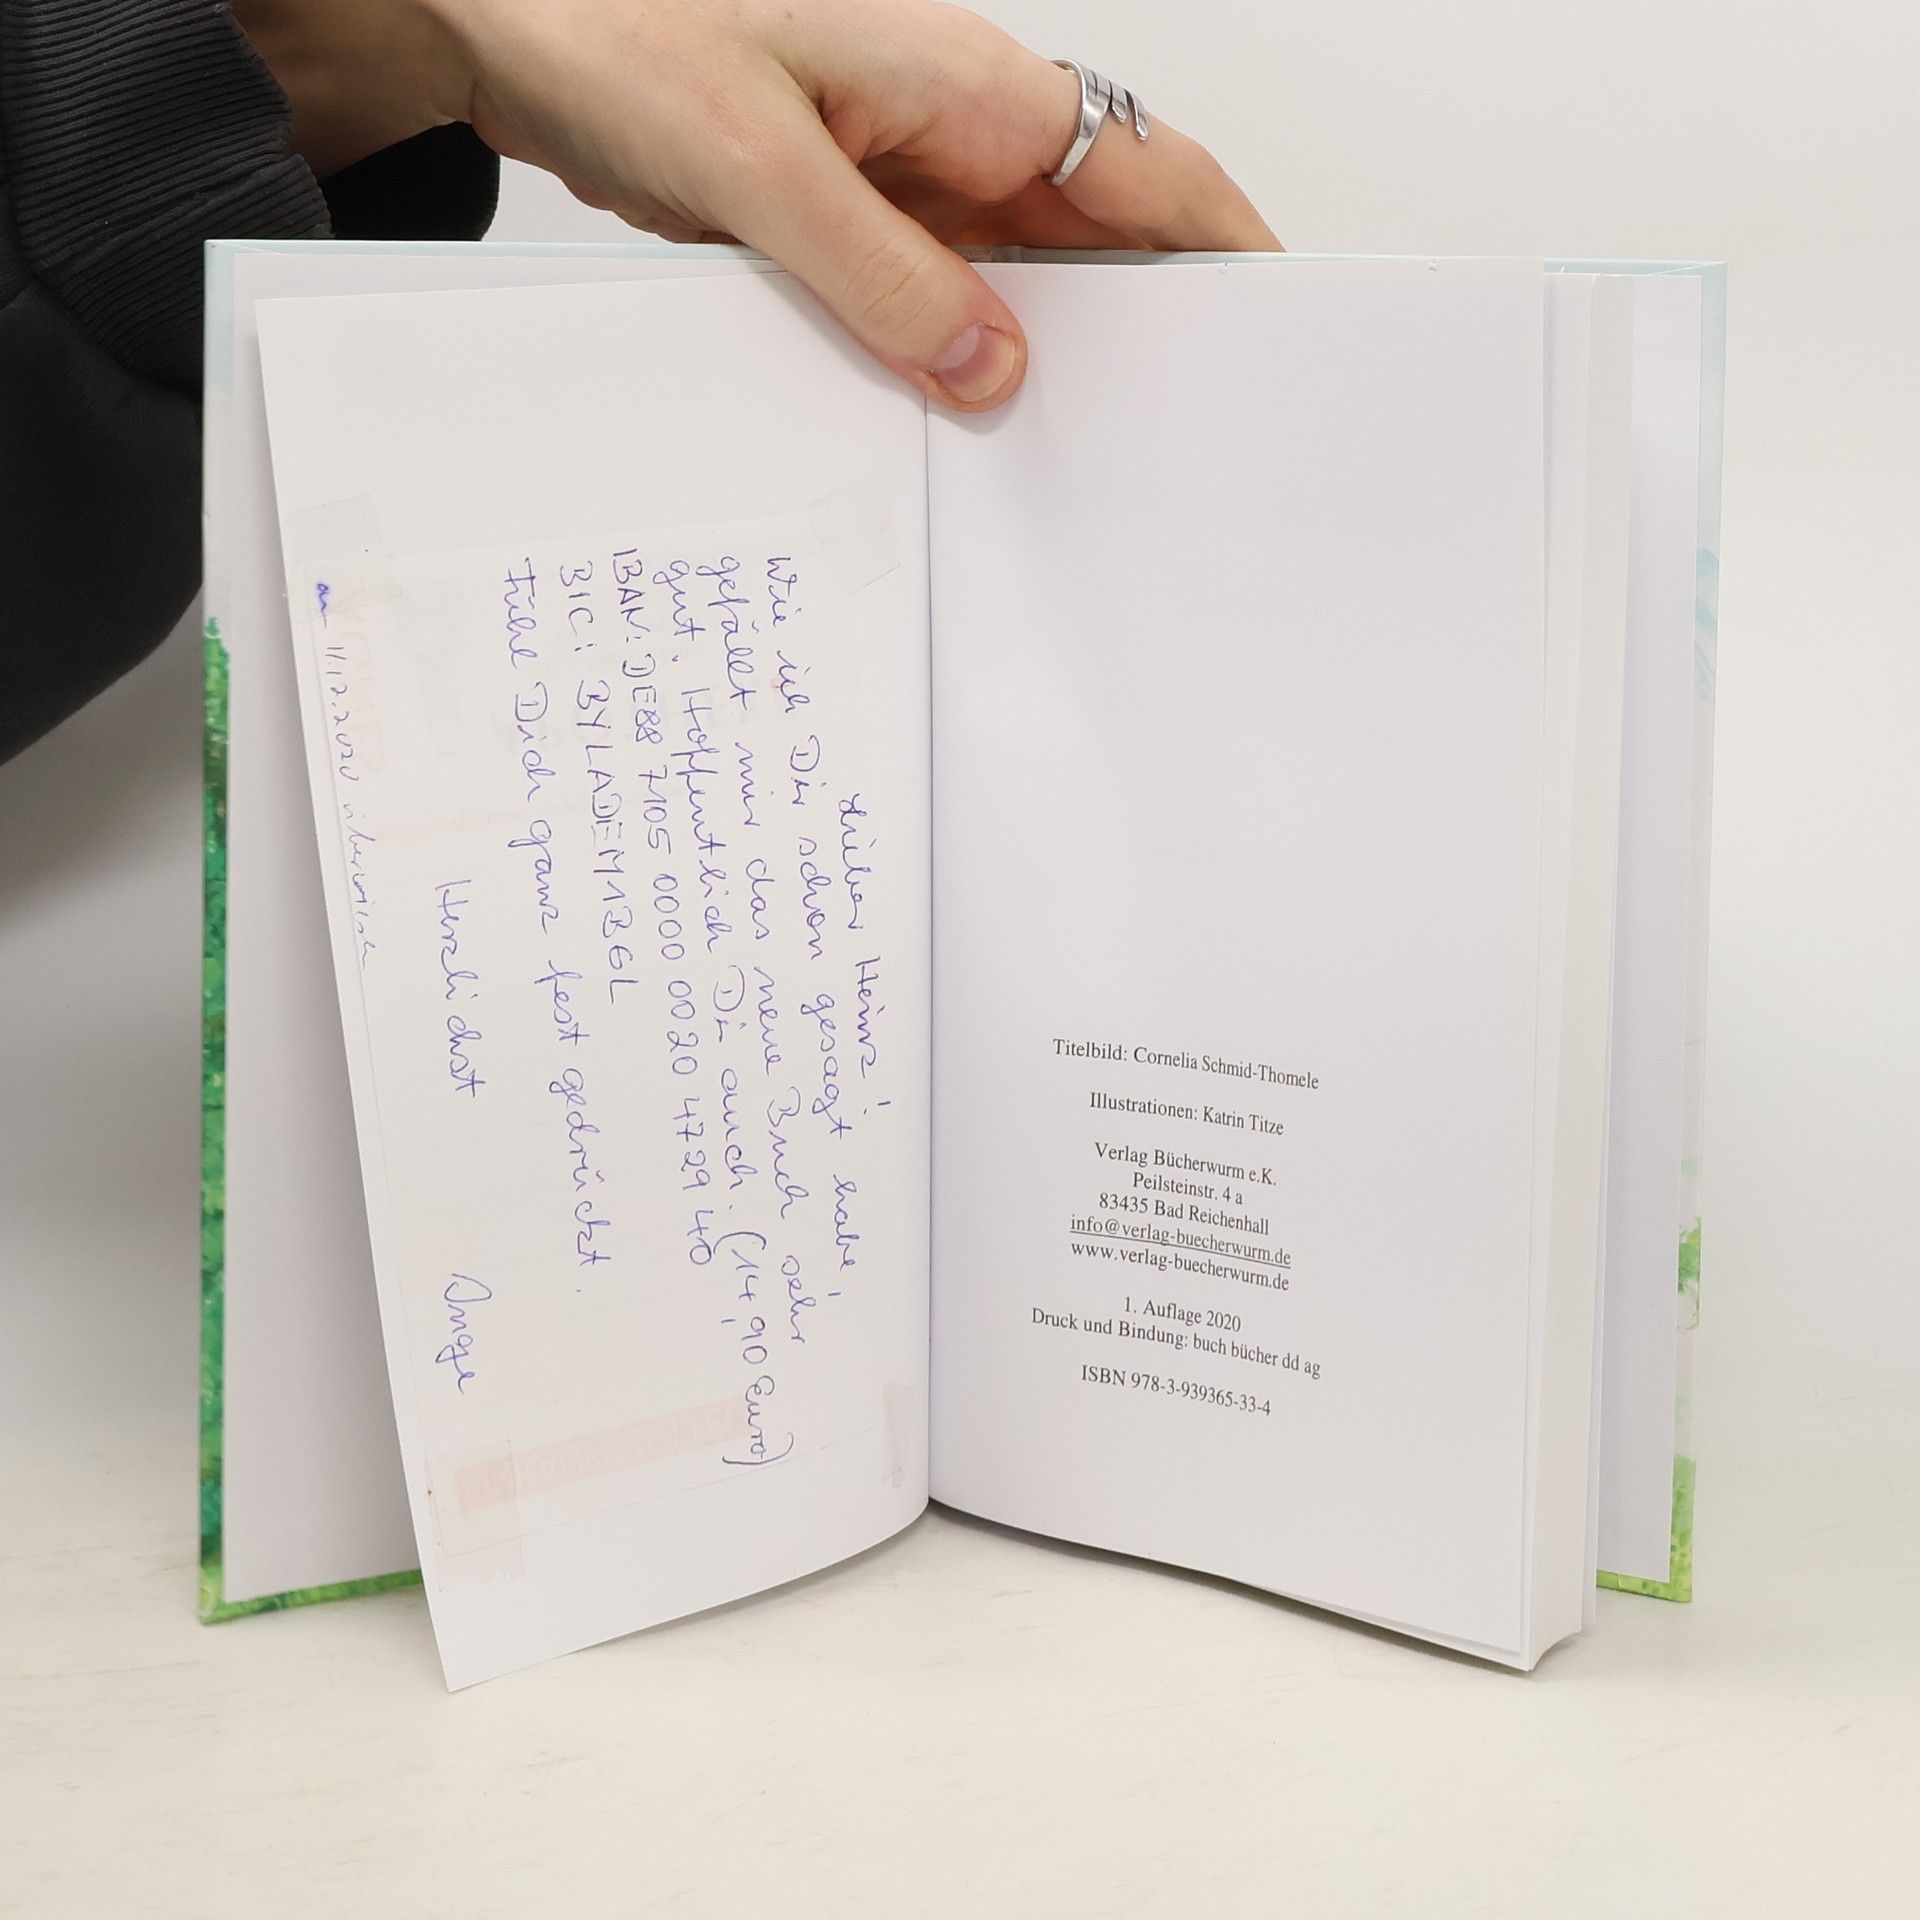 Lieber Heinz!
Wie ich Dir schon gesagt habe,
gefällt mir das neue Buch sehr
gut. Hoffentlich Dir auch. (14,90 Euro)
IBAN: DE88 7105 0000 0020 4729 40
BIC: BYLADEM1BGL
Fühl Dich ganz fest gedrückt.
Herzlichst Inge
am 11.12.2020 überwiesen
Titelbild: Cornelia Schmid-Thomele
Illustrationen: Katrin Titze
Verlag Bücherwurm e.K.
Peilsteinstr. 4 a
83435 Bad Reichenhall
info@verlag-buecherwurm.de
www.verlag-buecherwurm.de
1. Auflage 2020
Druck und Bindung: buch bücher dd ag
ISBN 978-3-939365-33-4